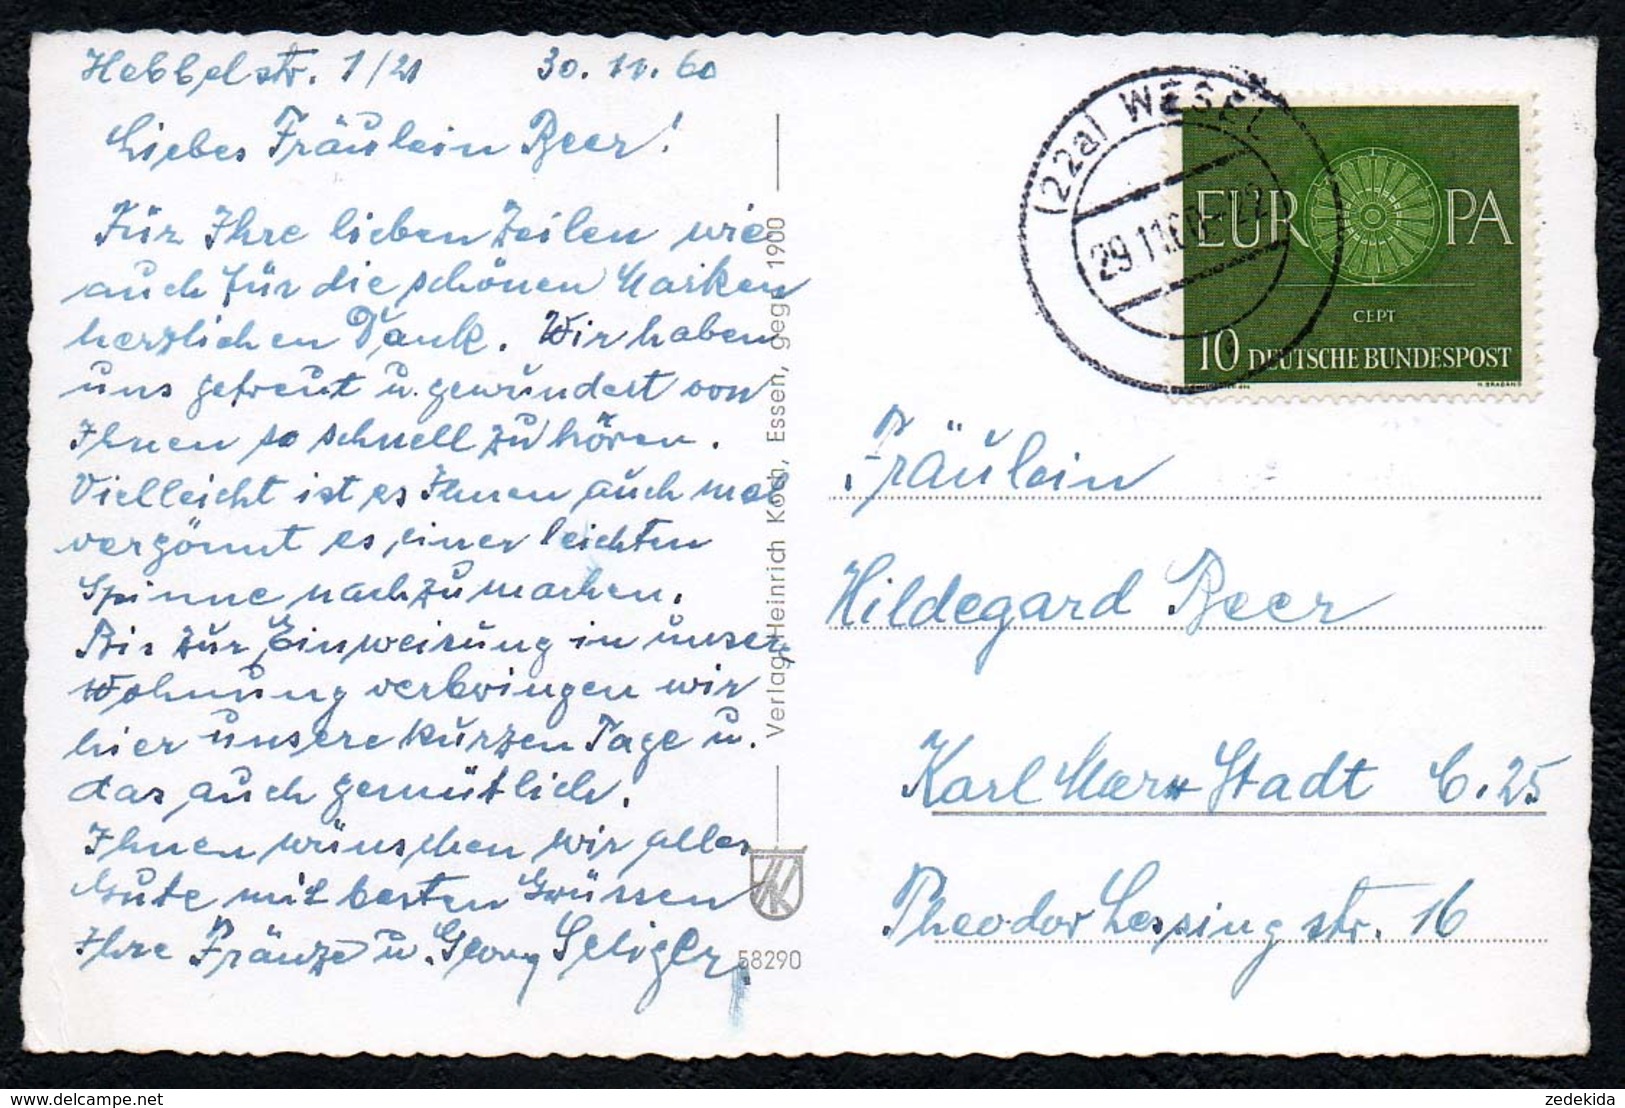 Hebbelstr. 1/21 30.11.60
Liebes Fräulein Beer!
Für Ihre lieben Zeilen wie
auch für die schönen Marken
herzlichen Dank. Wir haben
uns gefreut u. gewundert von
Ihnen so schnell zu hören.
Vielleicht ist es Ihnen auch mal
vergönnt es einer leichten
Spinne nachzumachen.
Bis zur Einweisung in unser
Wohnung verbringen wir
hier unsere kurzen Tage u.
das auch gemütlich.
Ihnen wünschen wir alles
Gute mit besten Grüssen
Ihre Fränze u. Georg Seliger.
Verlag Heinrich Koch, Essen, gegr. 1900
HK
58290
(22a) WESEL
29.11.60
EUROPA
CEPT
10 DEUTSCHE BUNDESPOST
H. BRABAND
Fräulein
Hildegard Beer
Karl Marx Stadt C. 25
Theodor Lessing str. 16
zedekida